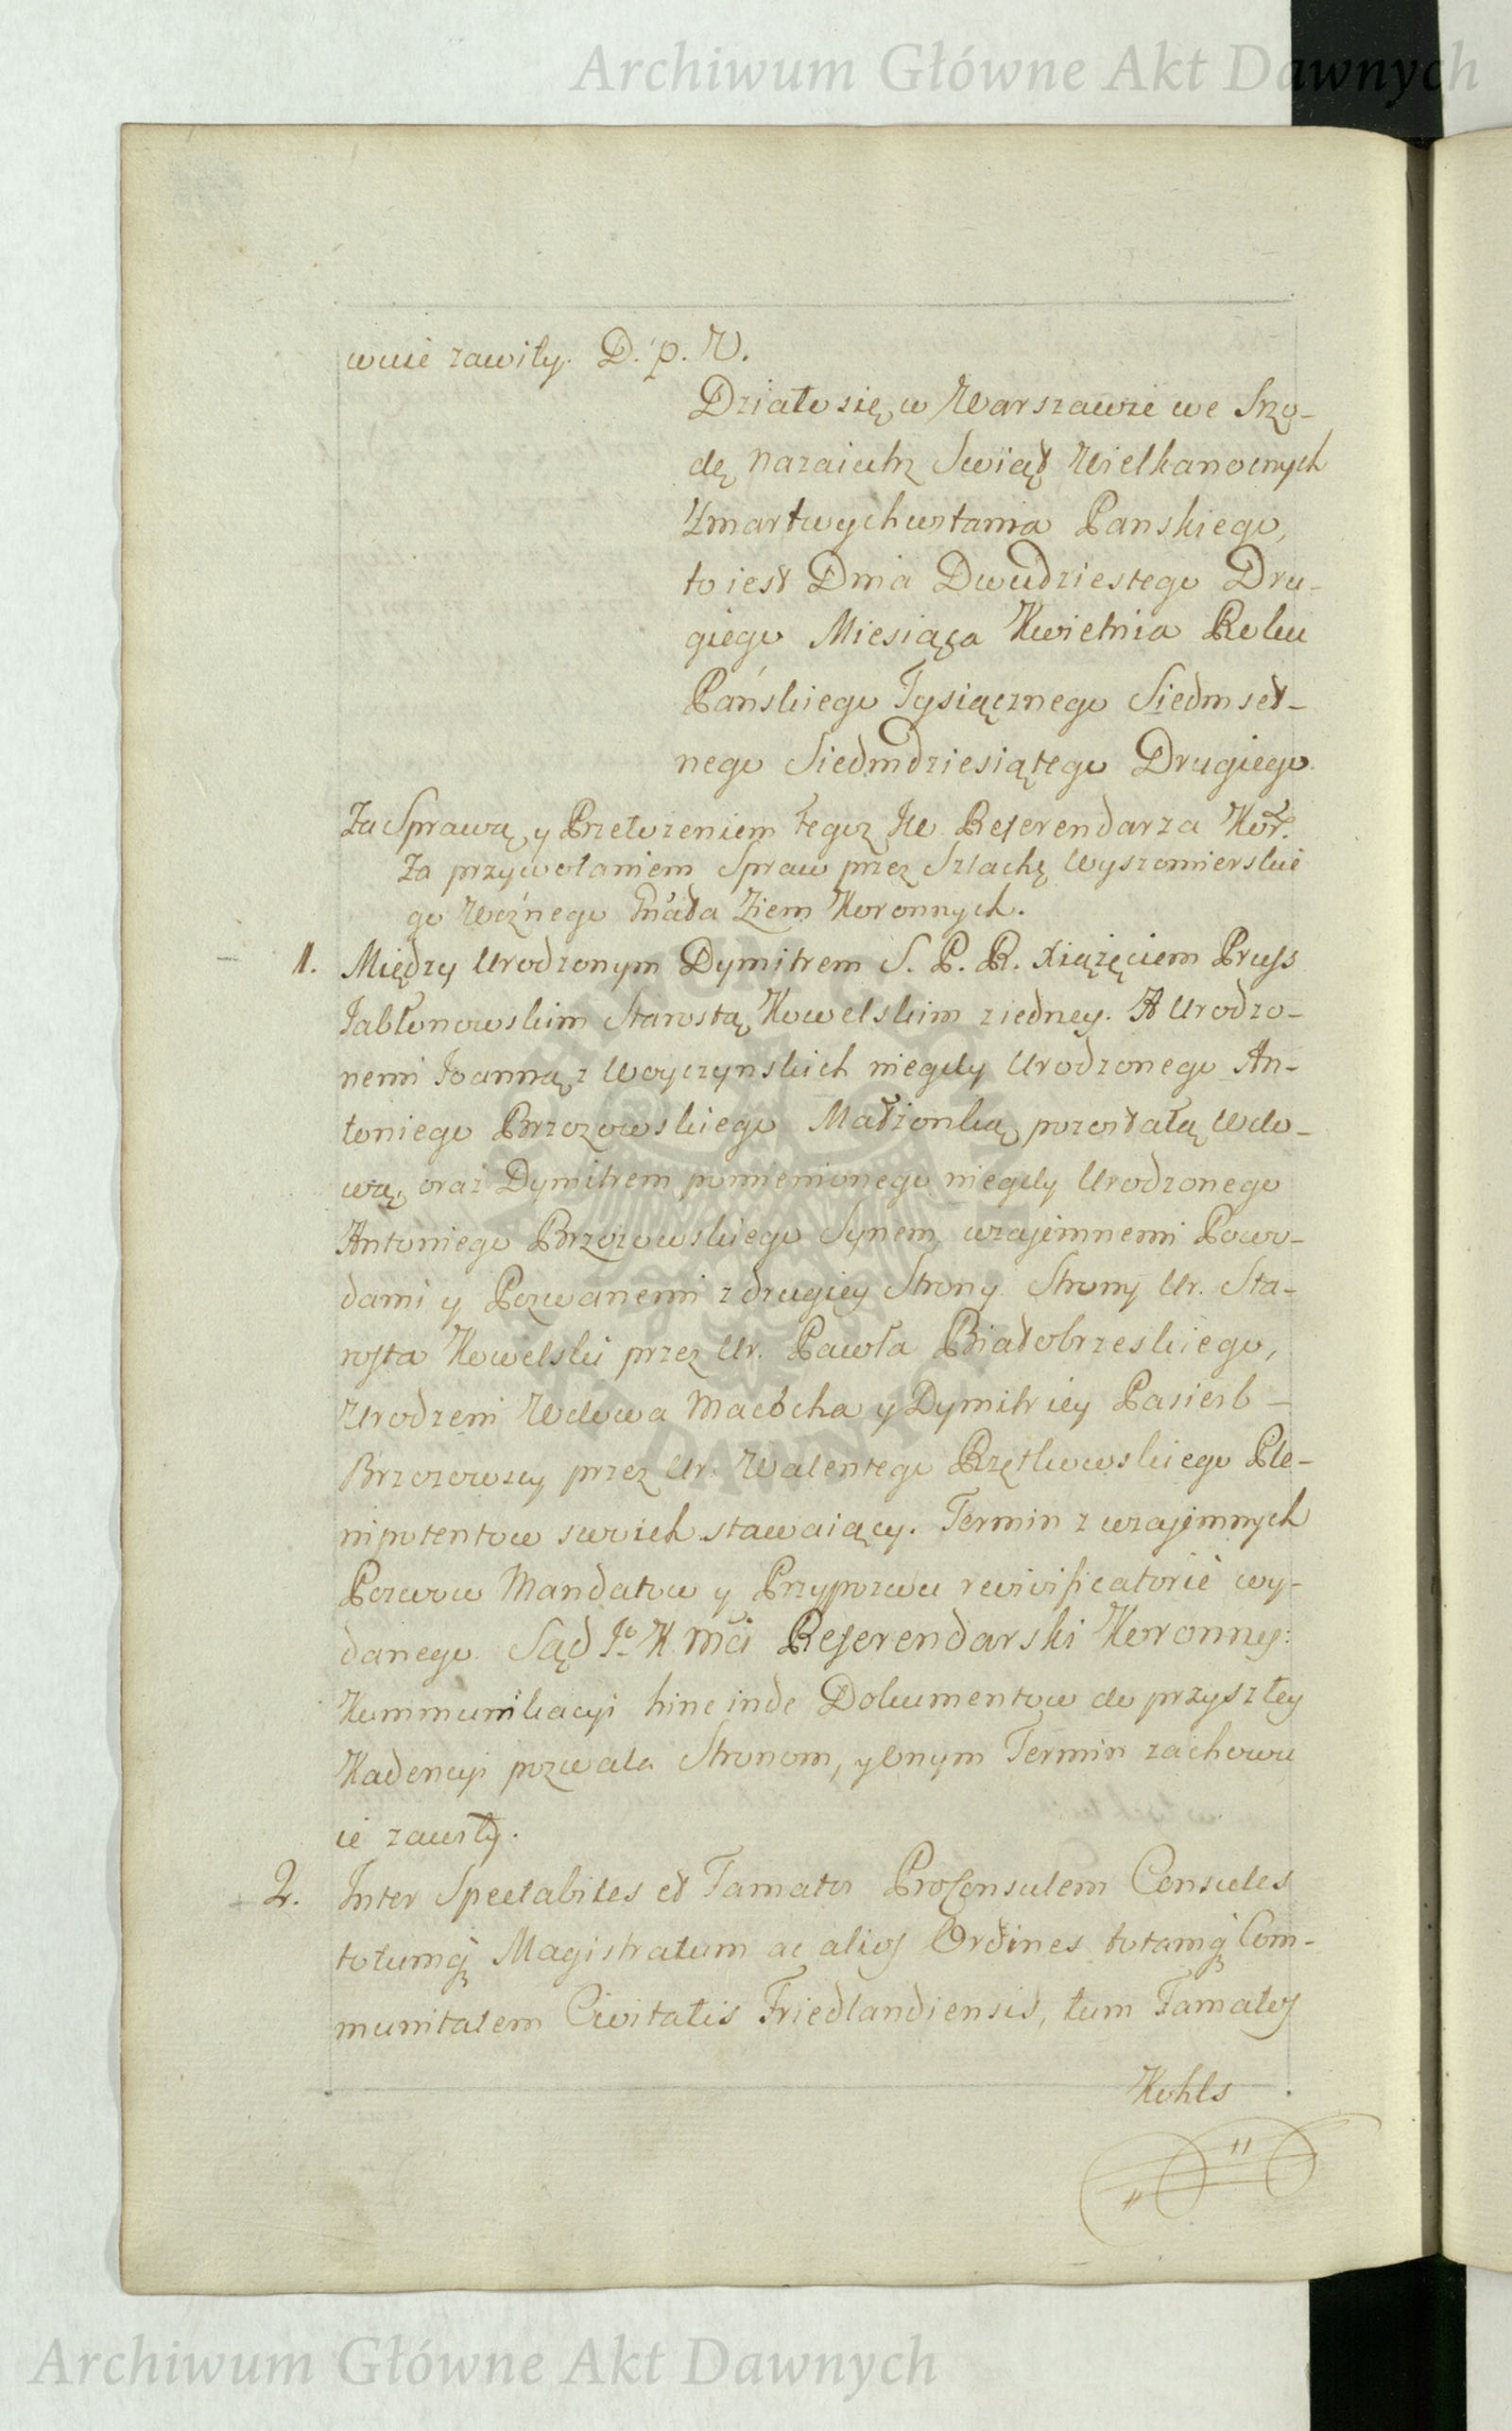 Archiwum Główne Akt Dawnych
wuie zawiły. D. p. W.
Działo się w Warszawie we Szro-
dę nazaiutrz Swiąt Wielkanocnych
Zmartwychwstania Panskiego,
to iest Dnia Dwudziestego Dru-
giego Miesiąca Kwietnia Roku
Pańskiego Tysiącznego Siedmset-
nego Siedmdziesiątego Drugiego
Za Sprawą y Przełożeniem tegoż Je Referendarza Kor.
Za przywołaniem Spraw przez Szlachę Wyszomierskie
go Woźnego Gnała Ziem Koronnych.
1. Między Urodzonym Dymitrem S. P. R. Xiążęciem Pruss
Jabłonowskim Starostą Kowelskim z iedney. A Urodzo-
nemi Joanną z Woyczynskich niegdy Urodzonego An-
toniego Brzozowskiego Małżonką pozostałą Wdo-
wą, oraz Dymitrem pomienionego niegdy Urodzonego
Antoniego Brzozowskiego Synem, wzajemnemi Powo-
dami y Pozwanemi z drugiey Strony. Strony Ur. Sta-
rosta Kowelski przez Ur. Pawła Białobrzeskiego,
Urodzeni Wdowa Macocha y Dymitriey Pasierb
Brzozowscy przez Ur. Walentego Rzętkowskiego Ple-
nipotentow swoich stawaiący. Termin z wzajemnych
Pozwow Mandatow y Przypozwu revivificatorie wy-
danego. Sąd Jo K Mci Referendarski Koronny:
Kommunikacyi hinc inde Dokumentow do przyszłey
Kadencyi pozwala Stronom, y onym Termin zachowu
ie zawiły.
2. Inter Spectabiles et Famatos ProConsulem Consules
totumq Magistratum ac alios Ordines totamq Com-
munitatem Civitatis Friedlandiensis, tum Famatos
Kohls
Archiwum Główne Akt Dawnych